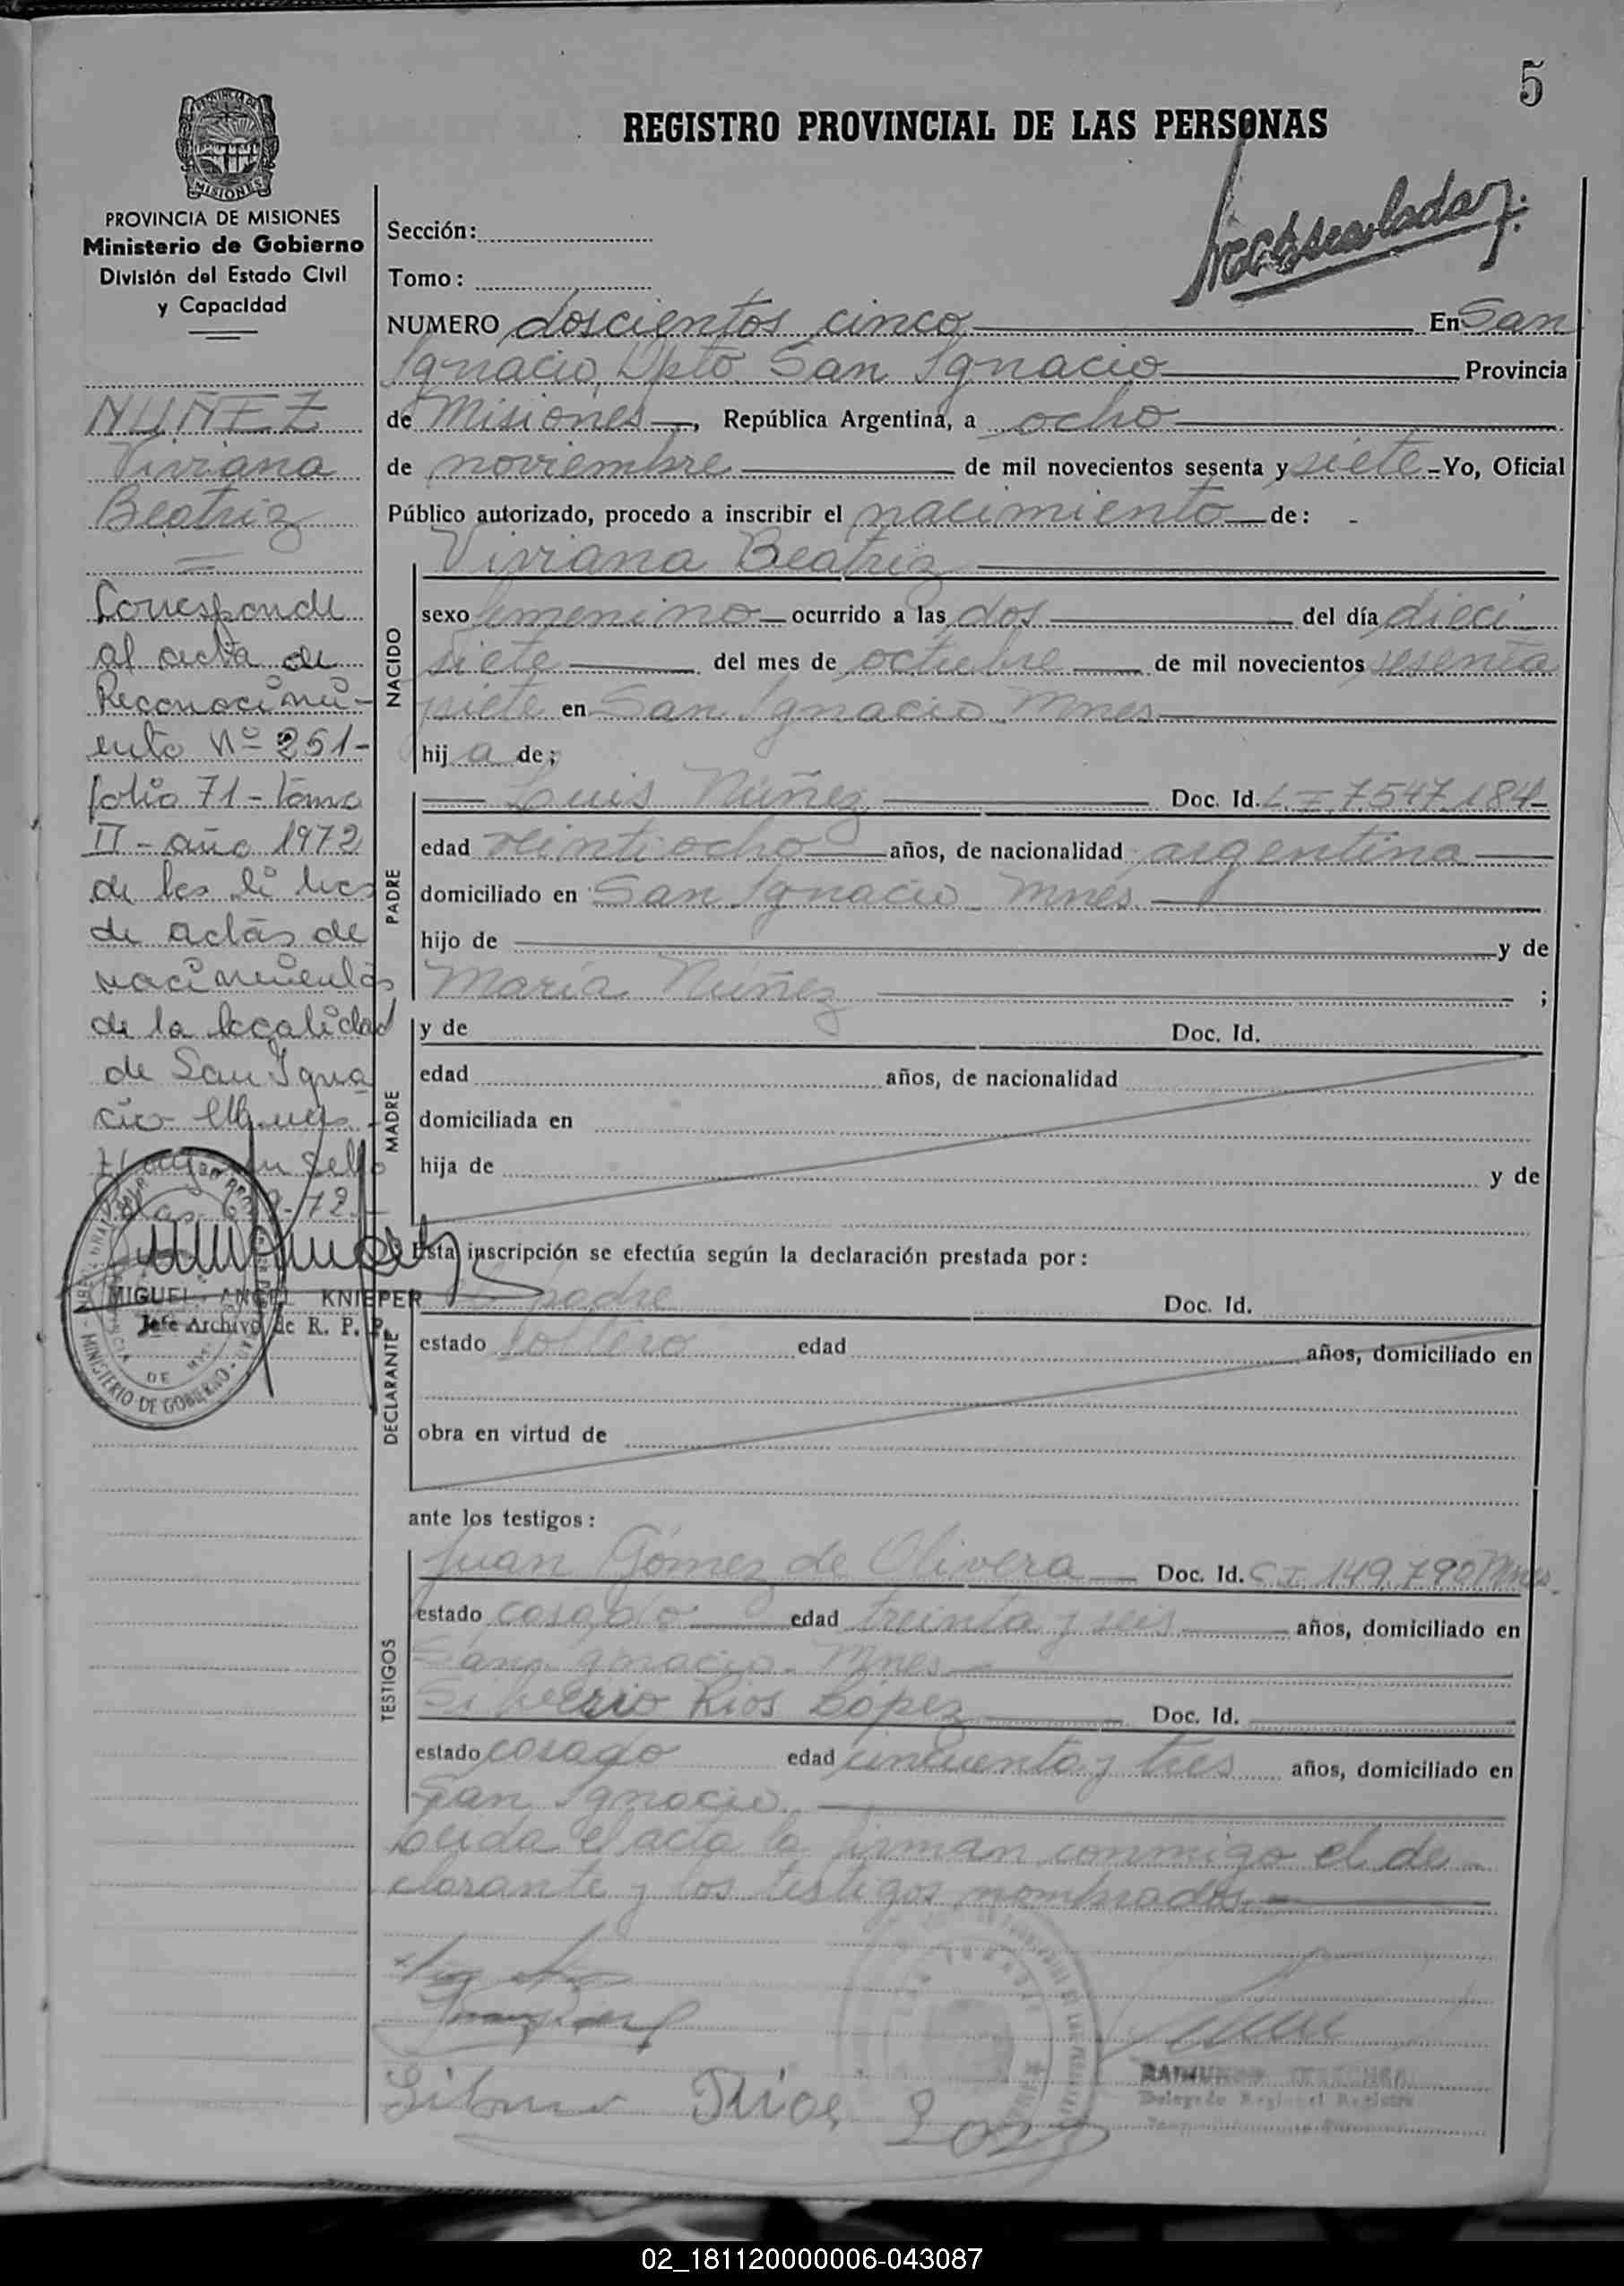 5
REGISTRO PROVINCIAL DE LAS PERSONAS
PROVINCIA DE MISIONES
Ministerio de Gobierno
División del Estado Civil
y Capacidad
NUÑEZ
Viviana
Beatriz
Corresponde
al acta de
Reconocimi-
ento Nº 251-
folio 71 - tomo
II - año 1972
de los libros
de actas de
nacimientos
de la localidad
de San Igna
cio Mnes
MIGUEL ANGEL KNIEPER
Jefe Archivo de R. P. P.
MINISTERIO DE GOBIERNO
Sección:
Tomo:
NUMERO doscientos cinco En San
Ignacio, Dpto. San Ignacio Provincia
de Misiones, República Argentina, a ocho
de noviembre de mil novecientos sesenta y siete - Yo, Oficial
Público autorizado, procedo a inscribir el nacimiento de: -
Viviana Beatriz
NACIDO
sexo femenino ocurrido a las dos del día dieci
siete del mes de octubre de mil novecientos sesenta
siete en San Ignacio Mnes
hij a de;
PADRE
Luis Núñez Doc. Id. L I 7547.184
edad veintiocho años, de nacionalidad argentina
domiciliado en San Ignacio - Mnes
hijo de y de
María Núñez ;
MADRE
y de Doc. Id.
edad años, de nacionalidad
domiciliada en
hija de y de
Esta inscripción se efectúa según la declaración prestada por:
DECLARANTE
el padre Doc. Id.
estado soltero edad años, domiciliado en
obra en virtud de
ante los testigos:
TESTIGOS
Juan Gómez de Olivera Doc. Id. C I 149.790 Mnes.
estado casado edad treinta y seis años, domiciliado en
San Ignacio - Mnes
Silverio Rios López Doc. Id.
estado casado edad cincuenta y tres años, domiciliado en
San Ignacio.
Leida el acta la firman conmigo el de
clarante y los testigos nombrados. -
Rios
Delegado Regional Registro
02_181120000006-043087